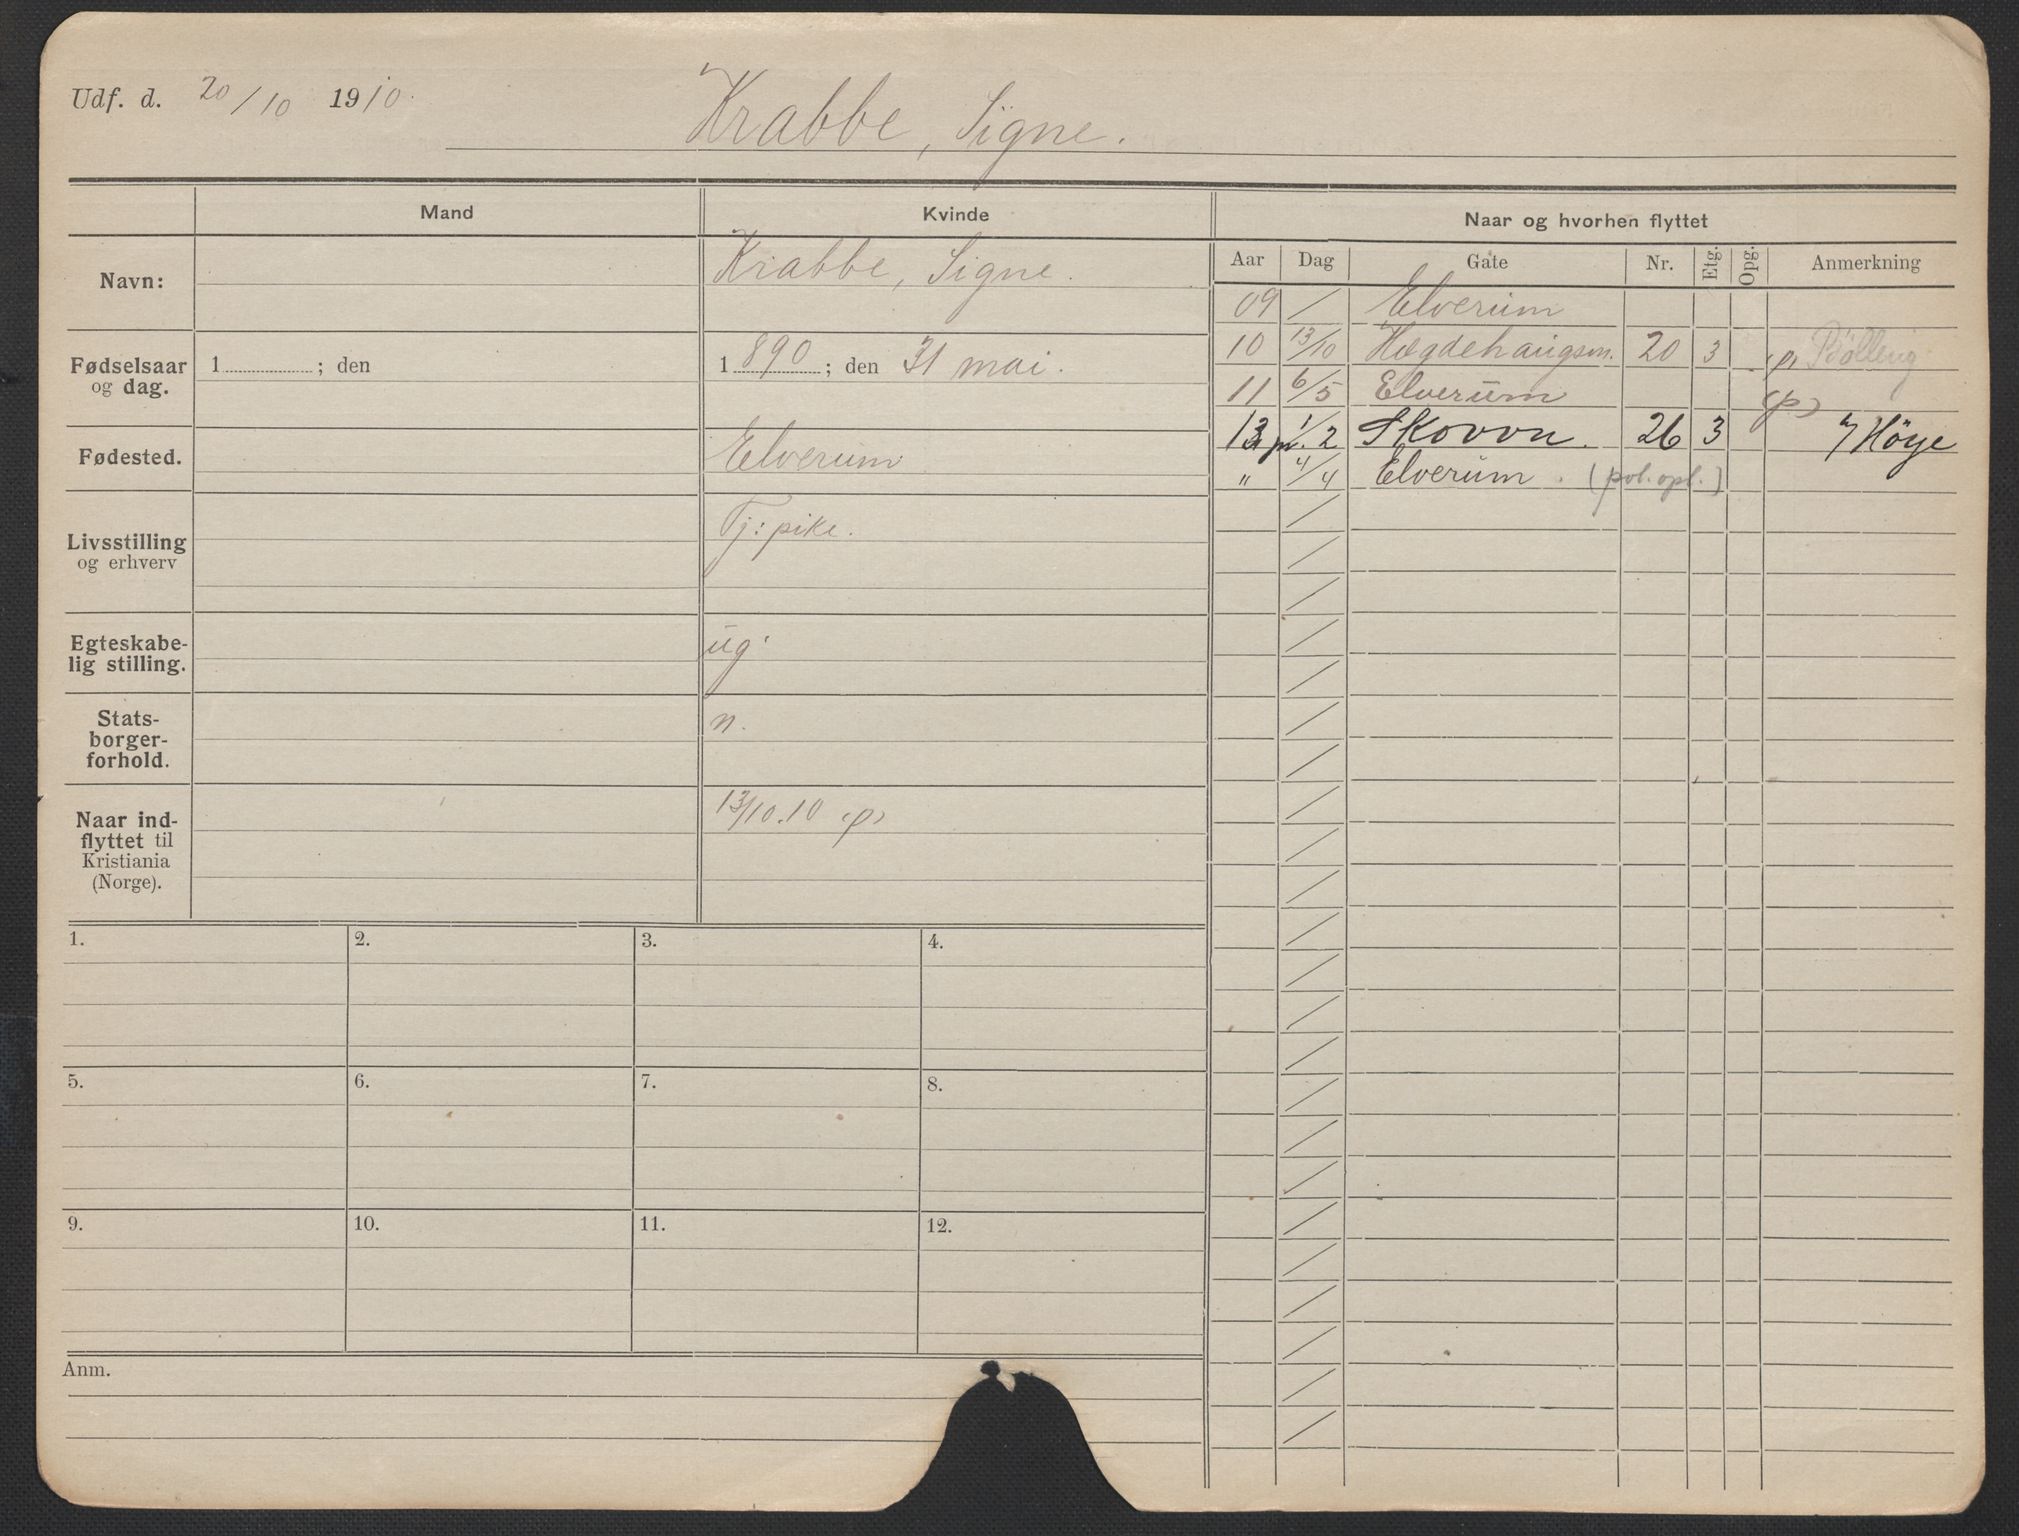 Udf. d. 20/10 1910.
Krabbe, Signe.
Mand
Kvinde
Naar og hvorhen flyttet
Aar Dag Gate Nr. Etg. Opg. Anmerkning
Navn:
Krabbe, Signe.
Fødselsaar og dag.
1 ; den
1 890 ; den 31 mai.
Fødested.
Elverum
Livsstilling og erhverv
Tj: pike.
Egteskabe-
lig stilling.
ug.
Stats-
borger-
forhold.
n.
Naar ind-
flyttet til
Kristiania
(Norge).
13/10.10 (p)
09 / Elverum
10 13/10 Hægdehaugsm. 20 3 (p) Bölling
11 6/5 Elverum (p)
13 1/2 Skovvn. 26 3 Höye
" 4/4 Elverum. (pol. opl.)
1. 2. 3. 4.
5. 6. 7. 8.
9. 10. 11. 12.
Anm.